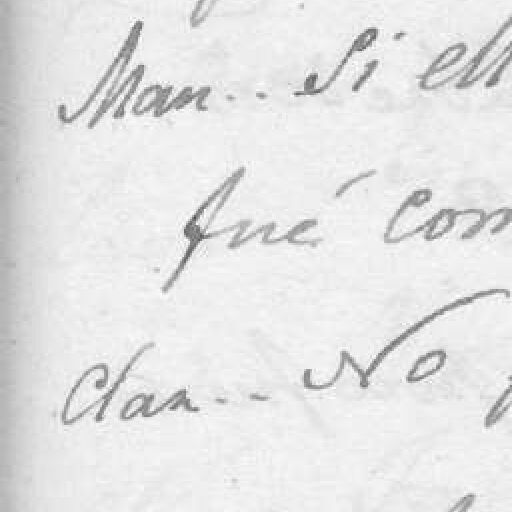 Man.. Si ell
fué com
Clan.. No